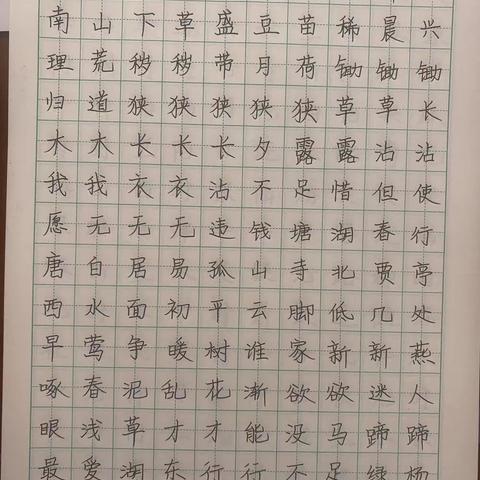 南山下草盛豆苗稀晨兴
理荒秽秽带月荷锄锄锄
归道狭狭狭狭狭草草长
木木长长长夕露露沾沾
我我衣衣沾不足惜但使
愿无无无违钱塘湖春行
唐白居易孤山寺北贾亭
西水面初平云脚低几处
早莺争暖树谁家新新燕
啄春泥乱花渐欲欲迷人
眼浅草才才能没马蹄蹄
最爱湖东行行不足绿杨